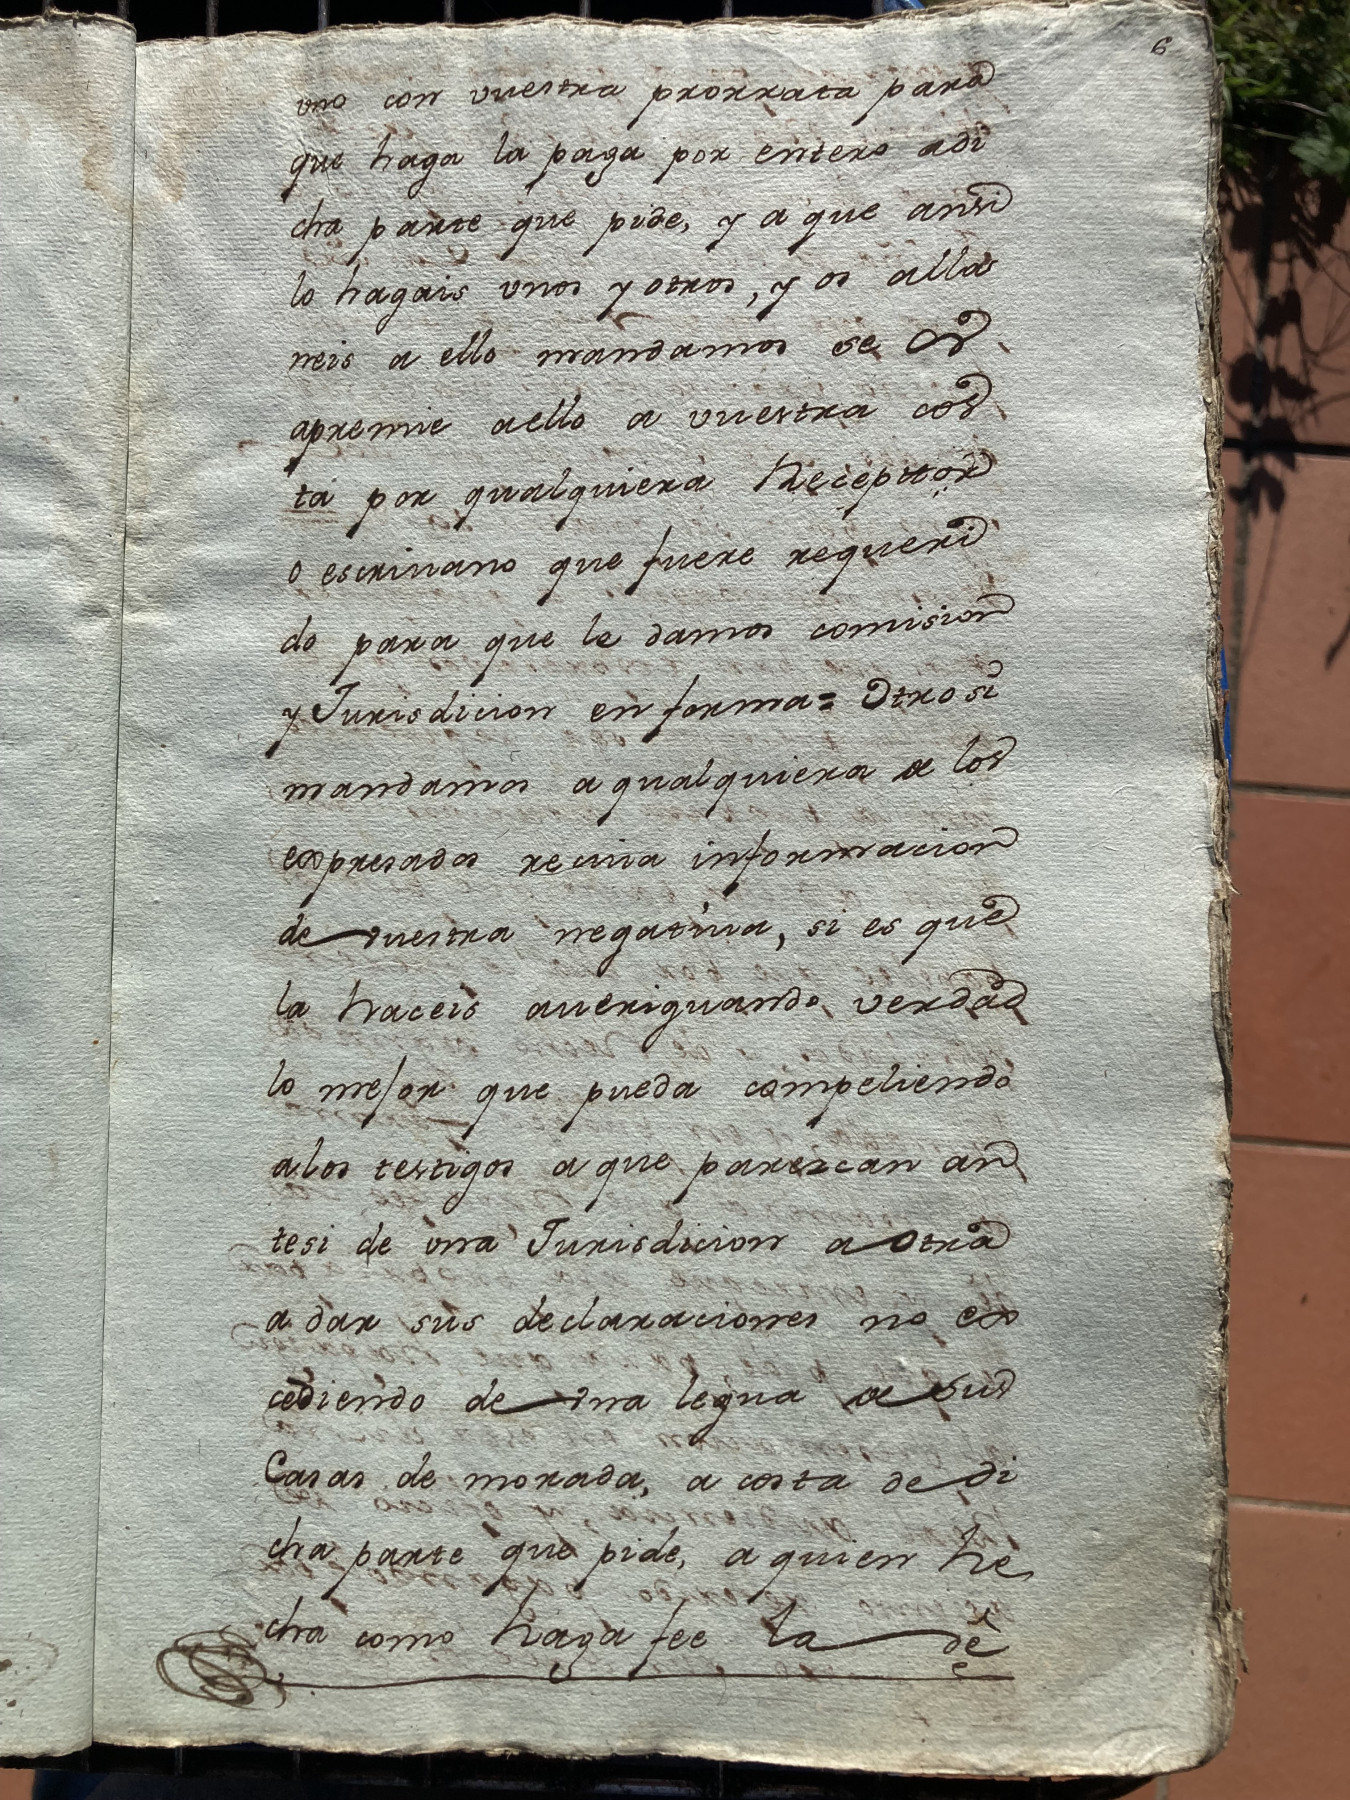 6
uno con vuestra prorrata para
que haga la paga por entero adi
cha parte que pide, y a que ansi
lo hagais unos y otros, y os alla
neis a ello mandamos se os
apremie aello a vuestra cos
ta por qualquiera Receptor
o escriuano que fuere requeri
do para que le damos comision
y Jurisdicion en forma = Otro si
mandamos a qualquiera de los
expresados reciua informacion
de vuestra negatiua, si es que
la haceis aueriguando verdad
lo mejor que pueda compeliendo
alos testigos a que parezcan an
tesi de una Jurisdicion a otra
a dar sus declaraciones no ex
cediendo de una legua de sus
Casas de morada, a costa de di
cha parte que pide, a quien he
cha como haga fee la de